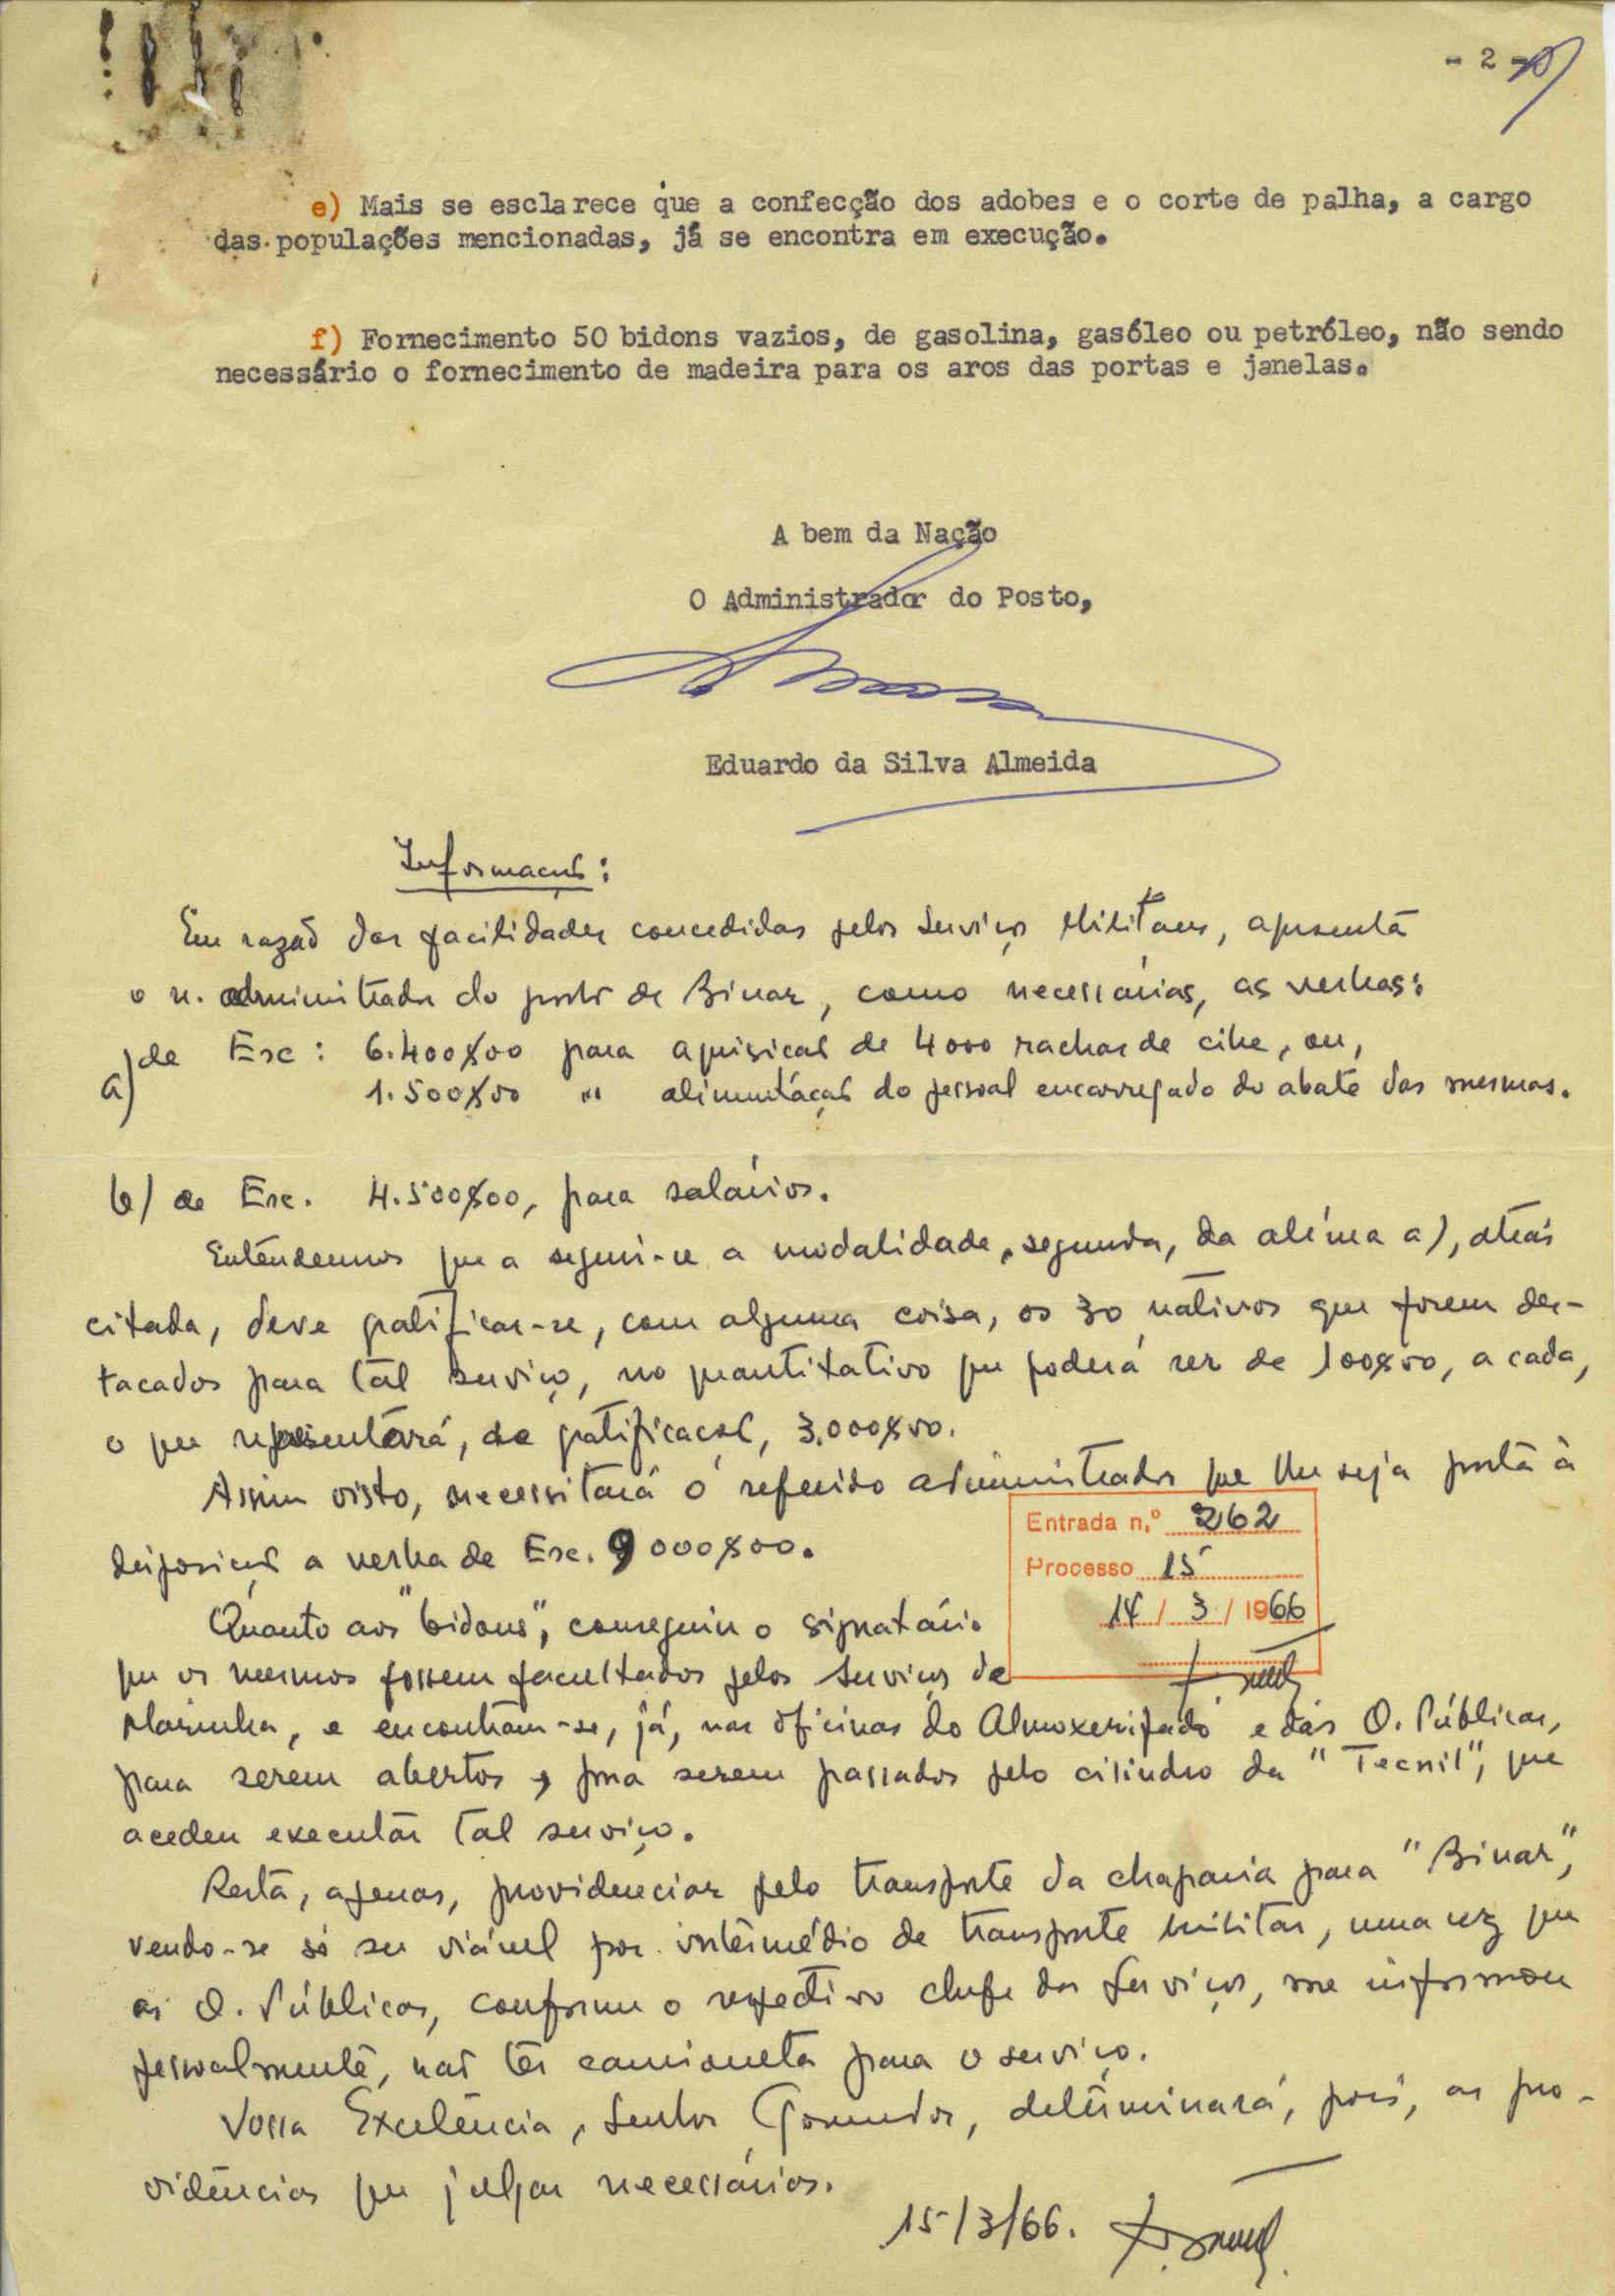 - 2 -
e) Mais se esclarece que a confecção dos adobes e o corte de palha, a cargo
das populações mencionadas, já se encontra em execução.
f) Fornecimento 50 bidons vazios, de gasolina, gasóleo ou petróleo, não sendo
necessário o fornecimento de madeira para os aros das portas e janelas.
A bem da Nação
O Administrador do Posto,
Eduardo da Silva Almeida
Informação:
Em razão das facilidades concedidas pelos Serviços Militares, apresenta
o administrador do posto de Binar, como necessárias, as verbas:
a) de Esc: 6.400$00 para aquisição de 4000 rachas de cibe, ou,
1.500$00 " alimentação do pessoal encarregado do abate das mesmas.
b) de Esc. 4.500$00, para salários.
Entendemos que a seguir-se a modalidade, segunda, da alínea a), atrás
citada, deve gratificar-se, com alguma coisa, os 30 nativos que forem des-
tacados para tal serviço, no quantitativo que poderá ser de 100$00, a cada,
o que representará, de gratificação, 3.000$00.
Assim visto, necessitará o referido administrador que lhe seja posta à
disposição a verba de Esc. 9000$00.
Entrada n.º 262
Processo 15
14 / 3 / 1966
Quanto aos "bidons", conseguiu o signatário
que os mesmos fossem facultados pelos Serviços de
Marinha, e encontram-se, já, nas oficinas do Almoxarifado e das O. Públicas,
para serem abertos e para serem passados pelo cilindro da "Tecnil", que
acedeu executar tal serviço.
Resta, apenas, providenciar pelo transporte da chaparia para "Binar",
vendo-se só ser viável por intermédio de transporte militar, uma vez que
as O. Públicas, conforme o respectivo chefe dos Serviços, me informou
pessoalmente, não ter camioneta para o serviço.
Vossa Excelência, Senhor Governador, determinará, pois, as pro-
vidências que julgar necessárias.
15/3/66.